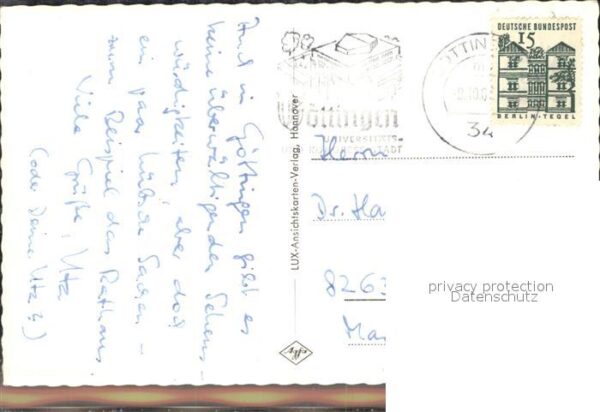 Auch in Göttingen gibt es
keine überwältigenden Sehens-
würdigkeiten, aber doch
ein paar hübsche Sachen –
zum Beispiel das Rathaus.
Viele Grüße, Uta
(oder Deine Uta?)
LUX-Ansichtskarten-Verlag, Hannover
Agfa
Göttingen
UNIVERSITÄTS-
STADT
GÖTTIN
34
DEUTSCHE BUNDESPOST
15
BERLIN-TEGEL
Herrn
Dr. Ha
8263
privacy protection
Datenschutz